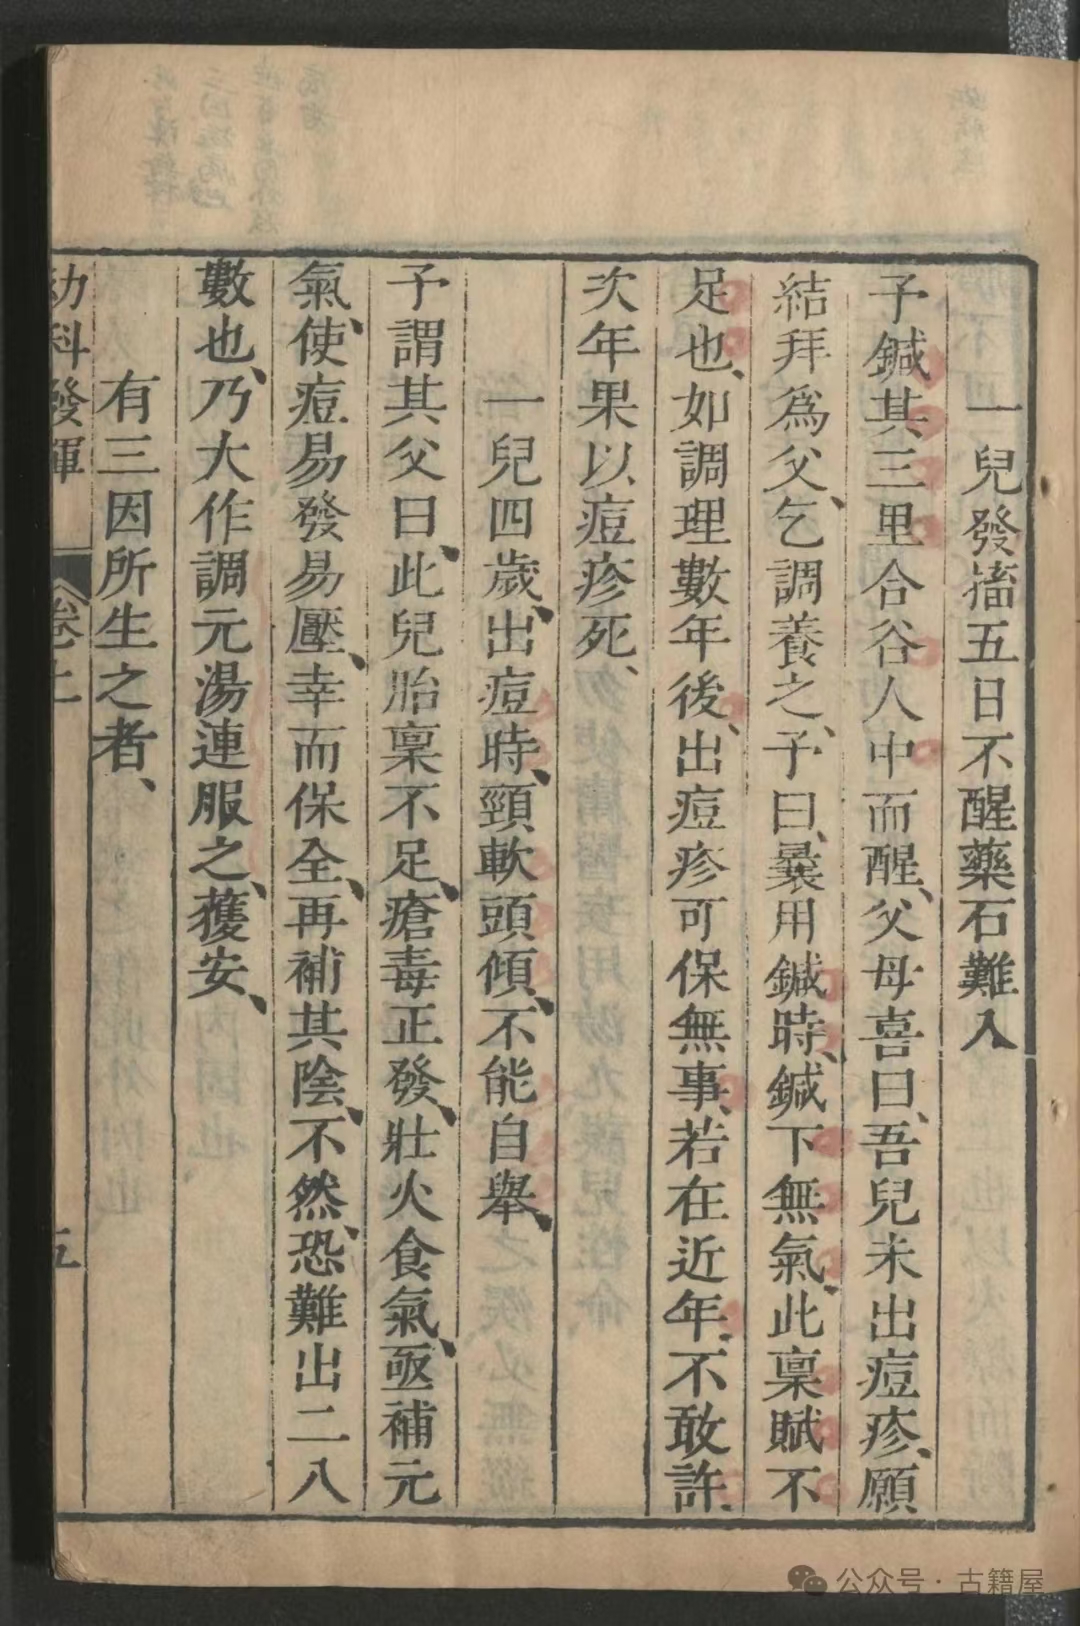 一兒發搐五日不醒藥石難入
予鍼其三里合谷人中而醒、父母喜曰、吾兒未出痘疹、願
結拜為父、乞調養之、予曰、曩用鍼時、鍼下無氣、此稟賦不
足也、如調理數年後、出痘疹可保無事、若在近年、不敢許、
次年果以痘疹死、
一兒四歲、出痘時、頸軟頭傾、不能自舉、
予謂其父曰、此兒胎稟不足、瘡毒正發、壯火食氣、亟補元
氣、使痘易發易壓、幸而保全、再補其陰、不然、恐難出二八
數也、乃大作調元湯連服之、獲安、
有三因所生之者、
幼科發揮 卷上 五
公众号·古籍屋